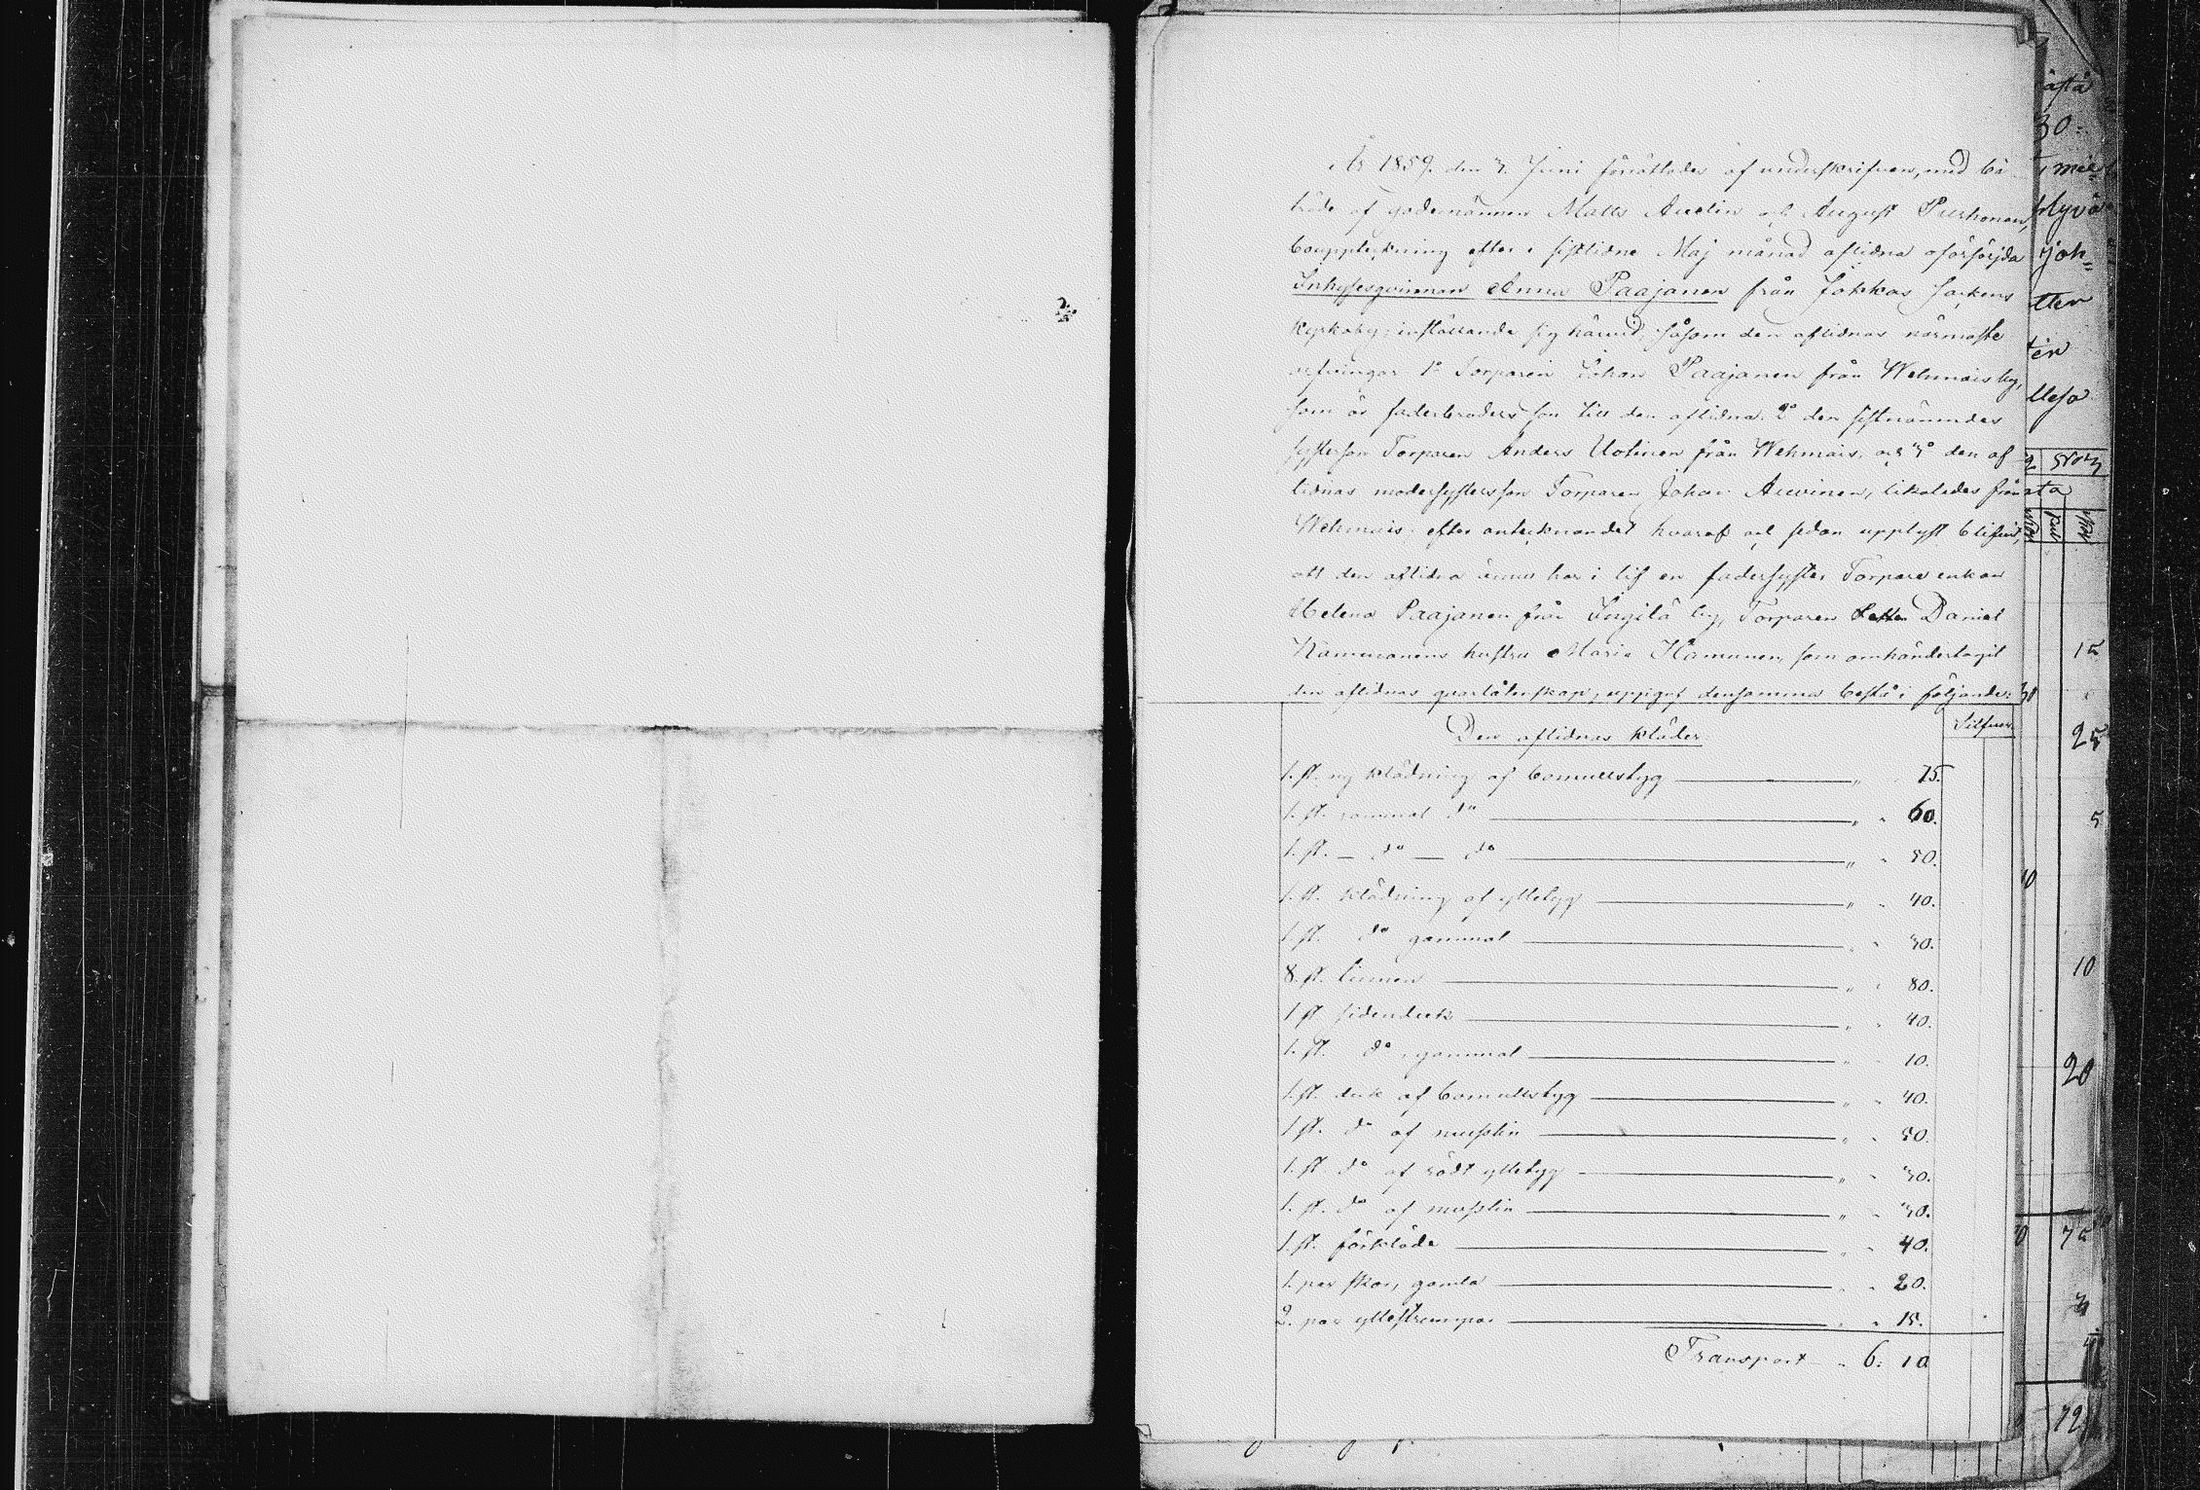 År 1859 den 3. Juni förrättades af underskrifven, med bi-
träde af godemännen Matts Auvin och August Purhonen,
bouppteckning efter i sistlidne Maj månad aflidna oförsörjda
Inhysesqvinnan Anna Paajanen från Jokkas Sockens
kyrkoby; inställande sig härvid, såsom den aflidnas närmaste
arfvingar 1o Torparen Johan Paajanen från Wehmais by,
som är faderbroders son till den aflidna. 2o den sistnämndes
systerson Torparen Anders Uotinen från Wehmais, och 3o den af
lidnas modersystersson Torparen Johan Auvinen, likaledes från
Wehmais; efter antecknandet hvaraf och sedan upplyst blifvit,
att den aflidna ännu har i lif en fadersyster Torpare enkan
Helena Paajanen från Ingilä by, Torparen Daniel
hustru Maria Hämunen, som omhändertagit
den aflidnas qvarlåtenskap, uppgaf densamma bestå i följande:
Silfver.
Den aflidnas kläder
1. st. ny klädning af bomullstyg " " 75.
1. st. gammal do " " 60.
1. st. — do — do " " 50.
1. st. klädning af ylletyg " " 40.
1. st. do gammal " " 30.
8. st. linnen " " 80.
1. st. sidenduk " " 40.
1. st. do gammal " " 10.
1. st. duk af bomullstyg " " 40.
1. st. do af musslin " " 50.
1. st. do af rödt ylletyg " " 30.
1. st. do af musslin " " 30.
1. st. förkläde " " 40.
1. par skor, gamla " " 20.
2. par yllestrumpor " " 15.
Transport " 6: 10